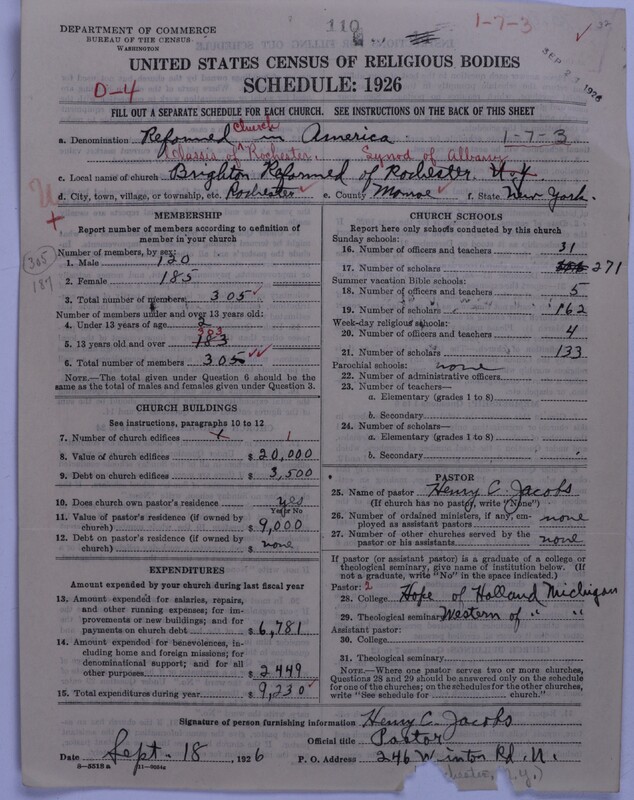 DEPARTMENT OF COMMERCE
BUREAU OF THE CENSUS
WASHINGTON
110
1-7-3
32
SEP 27 1926
UNITED STATES CENSUS OF RELIGIOUS BODIES
D-4
SCHEDULE: 1926
FILL OUT A SEPARATE SCHEDULE FOR EACH CHURCH. SEE INSTRUCTIONS ON THE BACK OF THIS SHEET
a. Denomination Reformed Church in America 1-7-3
Classis of Rochester. Synod of Albany
c. Local name of church Brighton Reformed of Rochester. N.Y.
d. City, town, village, or township, etc. Rochester e. County Monroe f. State New York.
MEMBERSHIP
Report number of members according to definition of member in your church
Number of members, by sex:
1. Male 120
2. Female 185
3. Total number of members 305
Number of members under and over 13 years old:
4. Under 13 years of age 2
303
5. 13 years old and over 183
6. Total number of members 305
NOTE.—The total given under Question 6 should be the same as the total of males and females given under Question 3.
305
187
CHURCH BUILDINGS
See instructions, paragraphs 10 to 12
7. Number of church edifices 1
8. Value of church edifices $ 20,000
9. Debt on church edifices $ 3,500
10. Does church own pastor's residence yes
Yes or No
11. Value of pastor's residence (if owned by church) $ 9,000
12. Debt on pastor's residence (if owned by church) $ none
EXPENDITURES
Amount expended by your church during last fiscal year
13. Amount expended for salaries, repairs, and other running expenses; for improvements or new buildings; and for payments on church debt $ 6,781
14. Amount expended for benevolences, including home and foreign missions; for denominational support; and for all other purposes $ 2449
15. Total expenditures during year $ 9,230
CHURCH SCHOOLS
Report here only schools conducted by this church
Sunday schools:
16. Number of officers and teachers 31
17. Number of scholars 271
Summer vacation Bible schools:
18. Number of officers and teachers 5
19. Number of scholars 162
Week-day religious schools:
20. Number of officers and teachers 4
21. Number of scholars 133
Parochial schools: none
22. Number of administrative officers
23. Number of teachers—
a. Elementary (grades 1 to 8)
b. Secondary
24. Number of scholars—
a. Elementary (grades 1 to 8)
b. Secondary
PASTOR
25. Name of pastor Henry C. Jacobs
(If church has no pastor, write "None")
26. Number of ordained ministers, if any, employed as assistant pastors none
27. Number of other churches served by the pastor or his assistants none
If pastor (or assistant pastor) is a graduate of a college or theological seminary, give name of institution below. (If not a graduate, write "No" in the space indicated.)
Pastor: 2
28. College Hope of Holland Michigan
29. Theological seminary Western of " "
Assistant pastor:
30. College
31. Theological seminary
NOTE.—Where one pastor serves two or more churches, Questions 28 and 29 should be answered only on the schedule for one of the churches; on the schedules for the other churches, write "See schedule for ______ church."
Signature of person furnishing information Henry C. Jacobs
Official title Pastor
Date Sept. 18, 1926 P. O. Address 246 Winton Rd. N.
8-5518a 11-9054a
N.Y.)